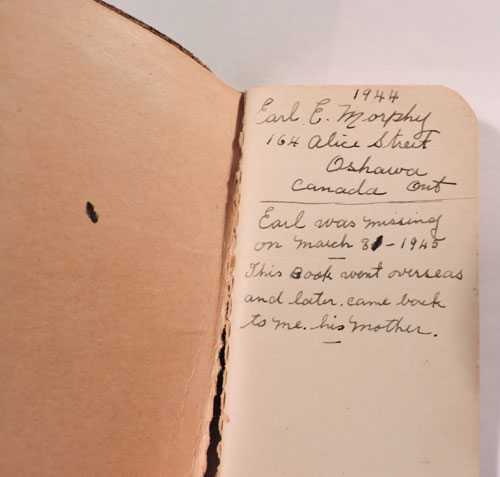 1944
Earl E. Morphy
164 Alice Street
Oshawa
Canada Ont
Earl was missing
on March 31 - 1945
This Book went overseas
and later. came back
to me. his Mother.